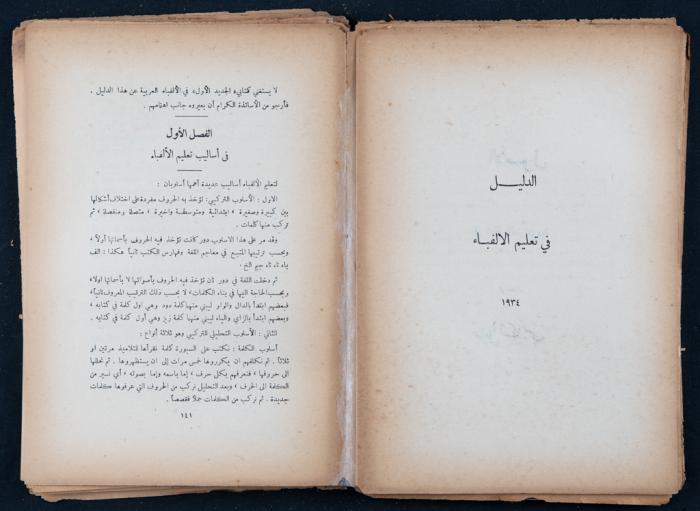 الدليـــل
في تعليم الالفباء
١٩٣٤
لا يستغني كتابي «الجديد الأول» في الألفباء العربية عن هذا الدليل .
فأرجو من الأساتذة الكرام أن يعيروه جانب اهتمامهم .
الفصل الأول
في أساليب تعليم الألفباء
لتعليم الألفباء أساليب عديدة أهمها أسلوبان :
الاول : الأسلوب التركيبي : تؤخذ به الحروف مفردة على اختلاف أشكالها
بين كبيرة وصغيرة ، ابتدائية ومتوسطة واخيرة ، متصلة ومنفصلة ، ثم
تركب منها كلمات .
وقد مر على هذا الاسلوب دور كانت تؤخذ فيه الحروف بأسمائها أولاً ،
وبحسب ترتيبها المتبع في معاجم اللغة وفهارس الكتب ثانياً هكذا : الف
باء تاء ثاء جيم الخ .
ثم دخلت اللغة في دور ثان تؤخذ فيه الحروف بأصواتها لا بأسمائها اولا ،
وبحسب الحاجة اليها في بناء الكلمات ، لا بحسب ذلك الترتيب المعروف ثانياً ،
فبعضهم ابتدأ بالدال والواو ليبني منها كلمة دود وهي اول كلمة في كتابه ،
وبعضهم ابتدأ بالزاي والياء ليبني منها كلمة زير وهي أول كلمة في كتابه .
الثاني : الأسلوب التحليلي التركيبي وهو ثلاثة أنواع :
أسلوب الكلمة : نكتب على السبورة كلمة نقرأها للتلاميذ مرتين او
ثلاثاً . ثم نكلفهم ان يكرروها خمس مرات إلى ان يستظهروها . ثم نحللها
الى حروفها ، فنعرفهم بكل حرف ، إما باسمه وإما بصوته ، أي نسير من
الكلمة الى الحرف ، وبعد التحليل نركب من الحروف التي عرفوها كلمات
جديدة . ثم نركب من الكلمات جملاً فقصصاً .
١٤١